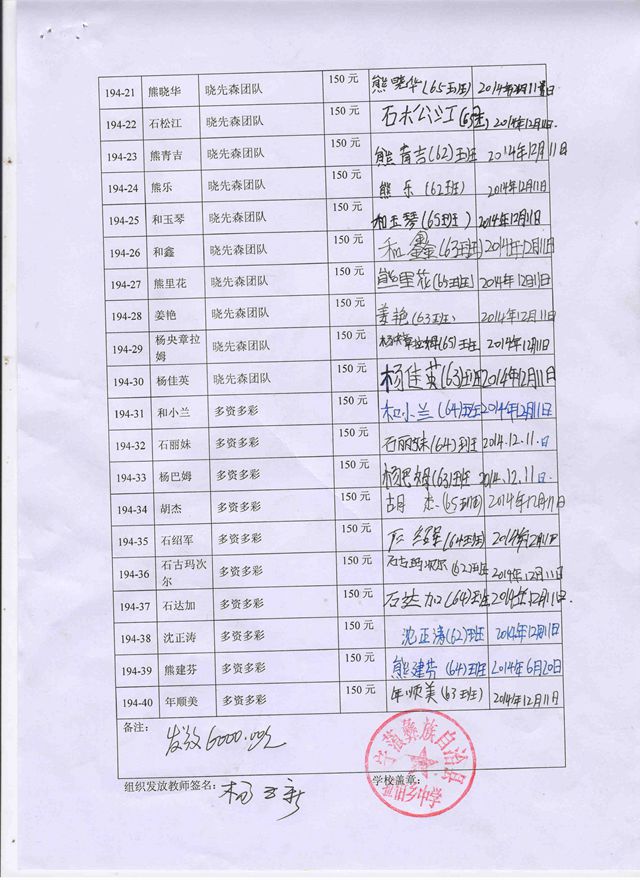 194-21 熊晓华 晓先森团队 150 元 熊晓华(65班) 2014年12月11日
194-22 石松江 晓先森团队 150 元 石松江(65班) 2014年12月11日
194-23 熊青吉 晓先森团队 150 元 熊青吉(62)班 2014年12月11日
194-24 熊乐 晓先森团队 150 元 熊 乐 (62班) 2014年12月11日
194-25 和玉琴 晓先森团队 150 元 和玉琴(65班) 2014年12月11日
194-26 和鑫 晓先森团队 150 元 和 鑫(63班) 2014年12月11日
194-27 熊里花 晓先森团队 150 元 熊里花(65班) 2014年12月11日
194-28 姜艳 晓先森团队 150 元 姜艳(63班) 2014年12月11日
194-29 杨央章拉姆 晓先森团队 150 元 杨央章拉姆(65)班 2014年12月11日
194-30 杨佳英 晓先森团队 150 元 杨佳英(63)班 2014年12月11日
194-31 和小兰 多资多彩 150元 和小兰(64)班 2014年12月11日
194-32 石丽妹 多资多彩 150元 石丽妹(64)班 2014.12.11.日
194-33 杨巴姆 多资多彩 150元 杨巴姆(63)班 2014.12.11.日
194-34 胡杰 多资多彩 150元 胡 杰(65班) 2014年12月11日
194-35 石绍军 多资多彩 150元 石绍军(64班) 2014年12月11日
194-36 石古玛次尔 多资多彩 150元 石古玛次尔(62)班 2014年12月11日
194-37 石达加 多资多彩 150元 石达加(64)班 2014年12月11日.
194-38 沈正涛 多资多彩 150元 沈正涛(62)班 2014年12月11日
194-39 熊建芬 多资多彩 150元 熊建芬(64)班 2014年6月20日
194-40 年顺美 多资多彩 150元 年顺美(63班) 2014年12月11日
备注：
发放6000.00元
组织发放教师签名： 学校盖章：
宁蒗彝族自治县
乡中学